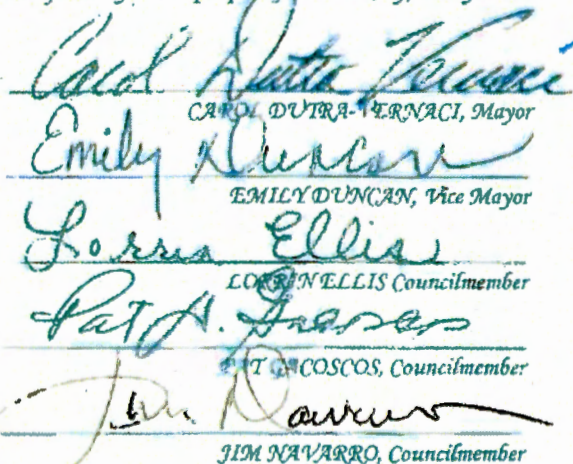 Carol Dutra Vernaci
CAROL DUTRA-VERNACI, Mayor
Emily Duncan
EMILY DUNCAN, Vice Mayor
Lorrin Ellis
LORRIN ELLIS Councilmember
Pat H. Gacoscos
PAT GACOSCOS, Councilmember
Jim Navarro
JIM NAVARRO, Councilmember